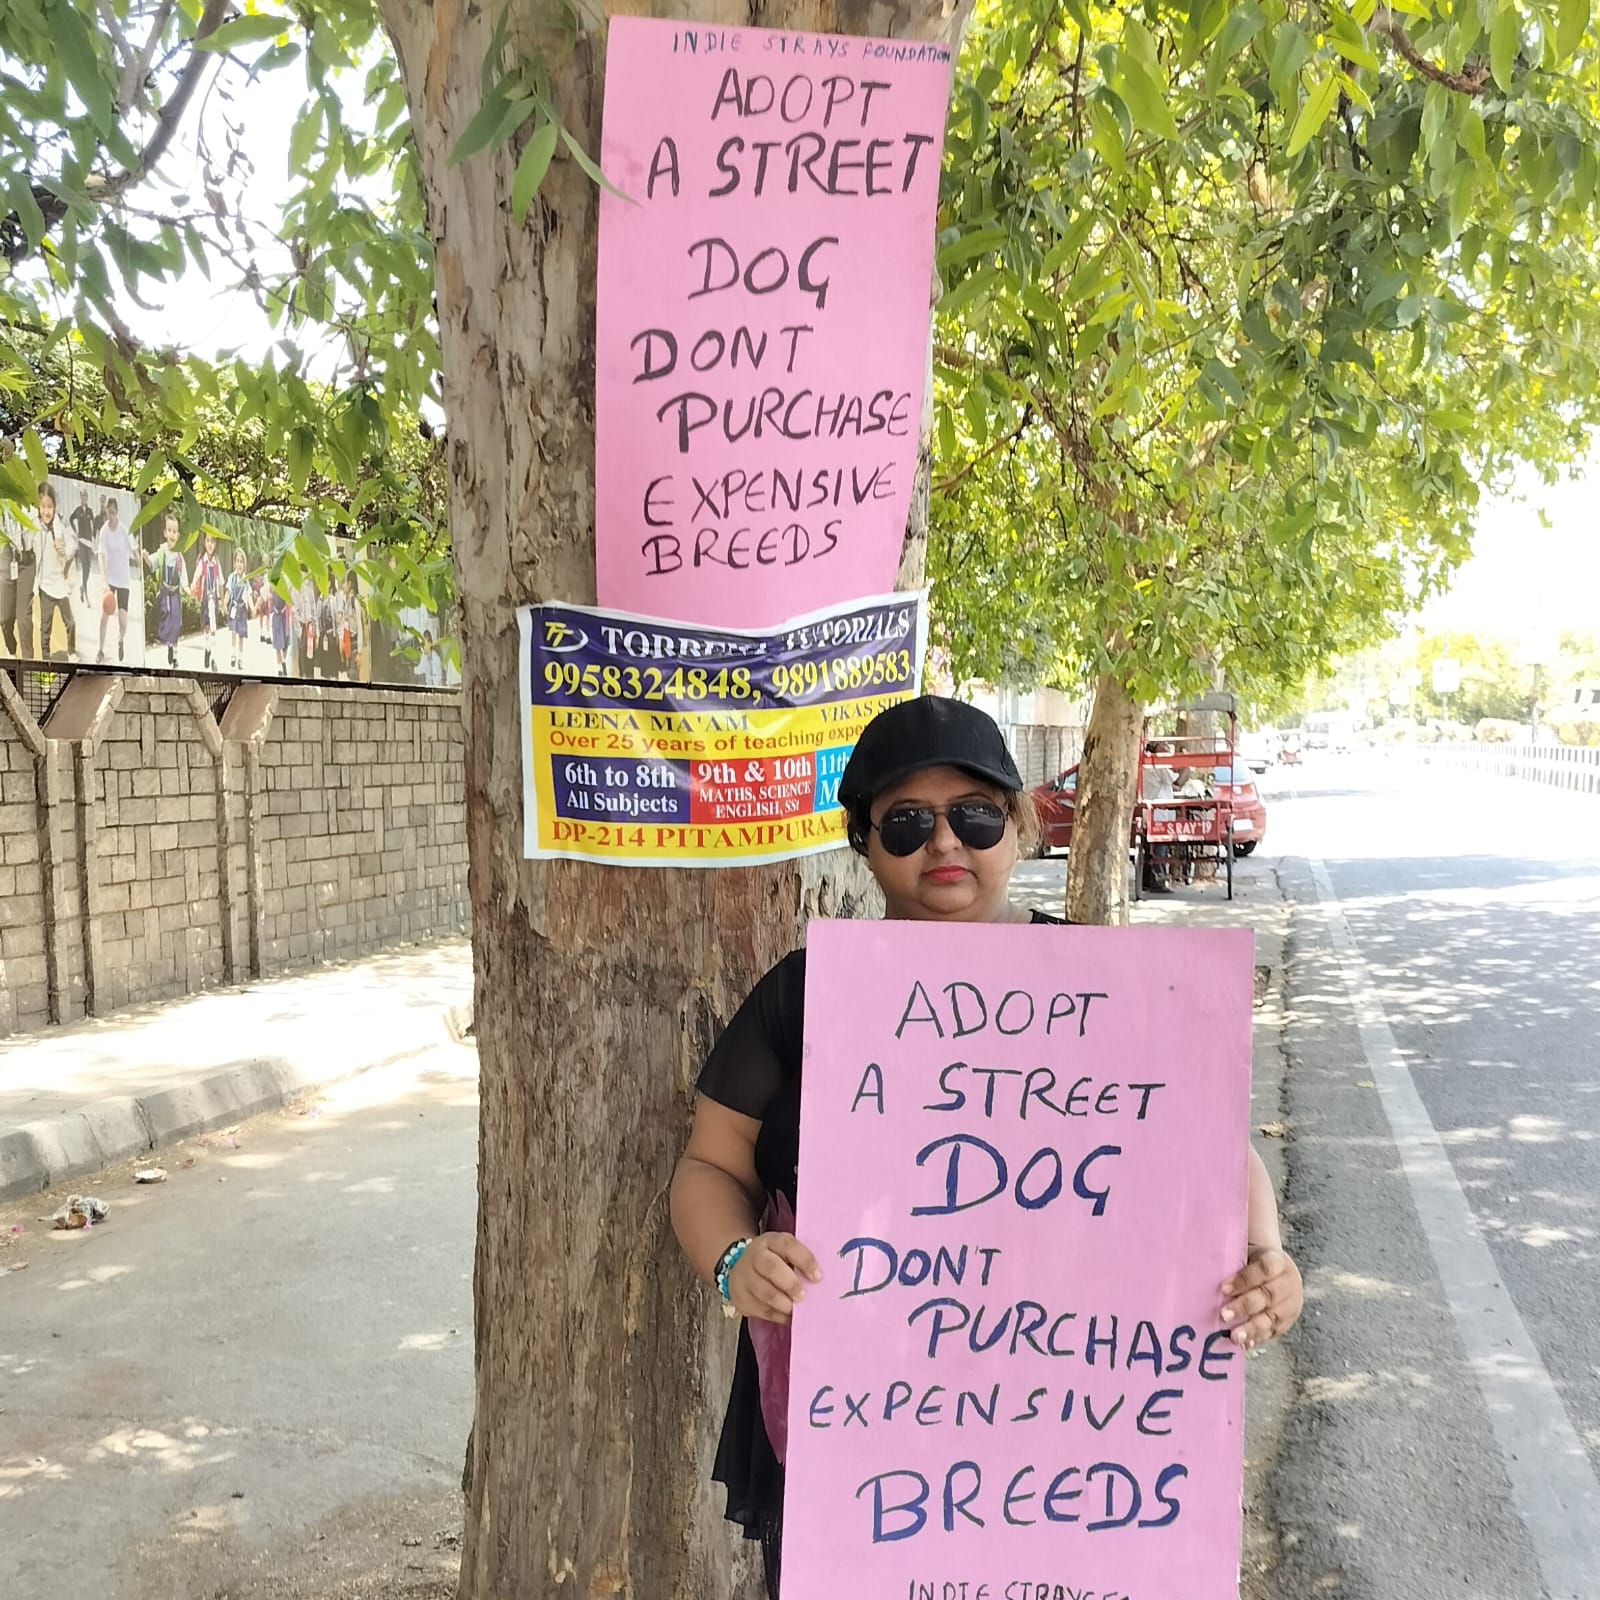 INDIE STRAYS FOUNDATION
ADOPT
A STREET
DOG
DONT
PURCHASE
EXPENSIVE
BREEDS
TT TORRENT TUTORIALS
9958324848, 9891889583
LEENA MA'AM VIKAS
Over 25 years of teaching
6th to 8th
All Subjects
9th & 10th
MATHS, SCIENCE
ENGLISH, SSt
11th
DP-214 PITAMPURA,
S.RAY'19
ADOPT
A STREET
DOG
DONT
PURCHASE
EXPENSIVE
BREEDS
INDIE STRAYS